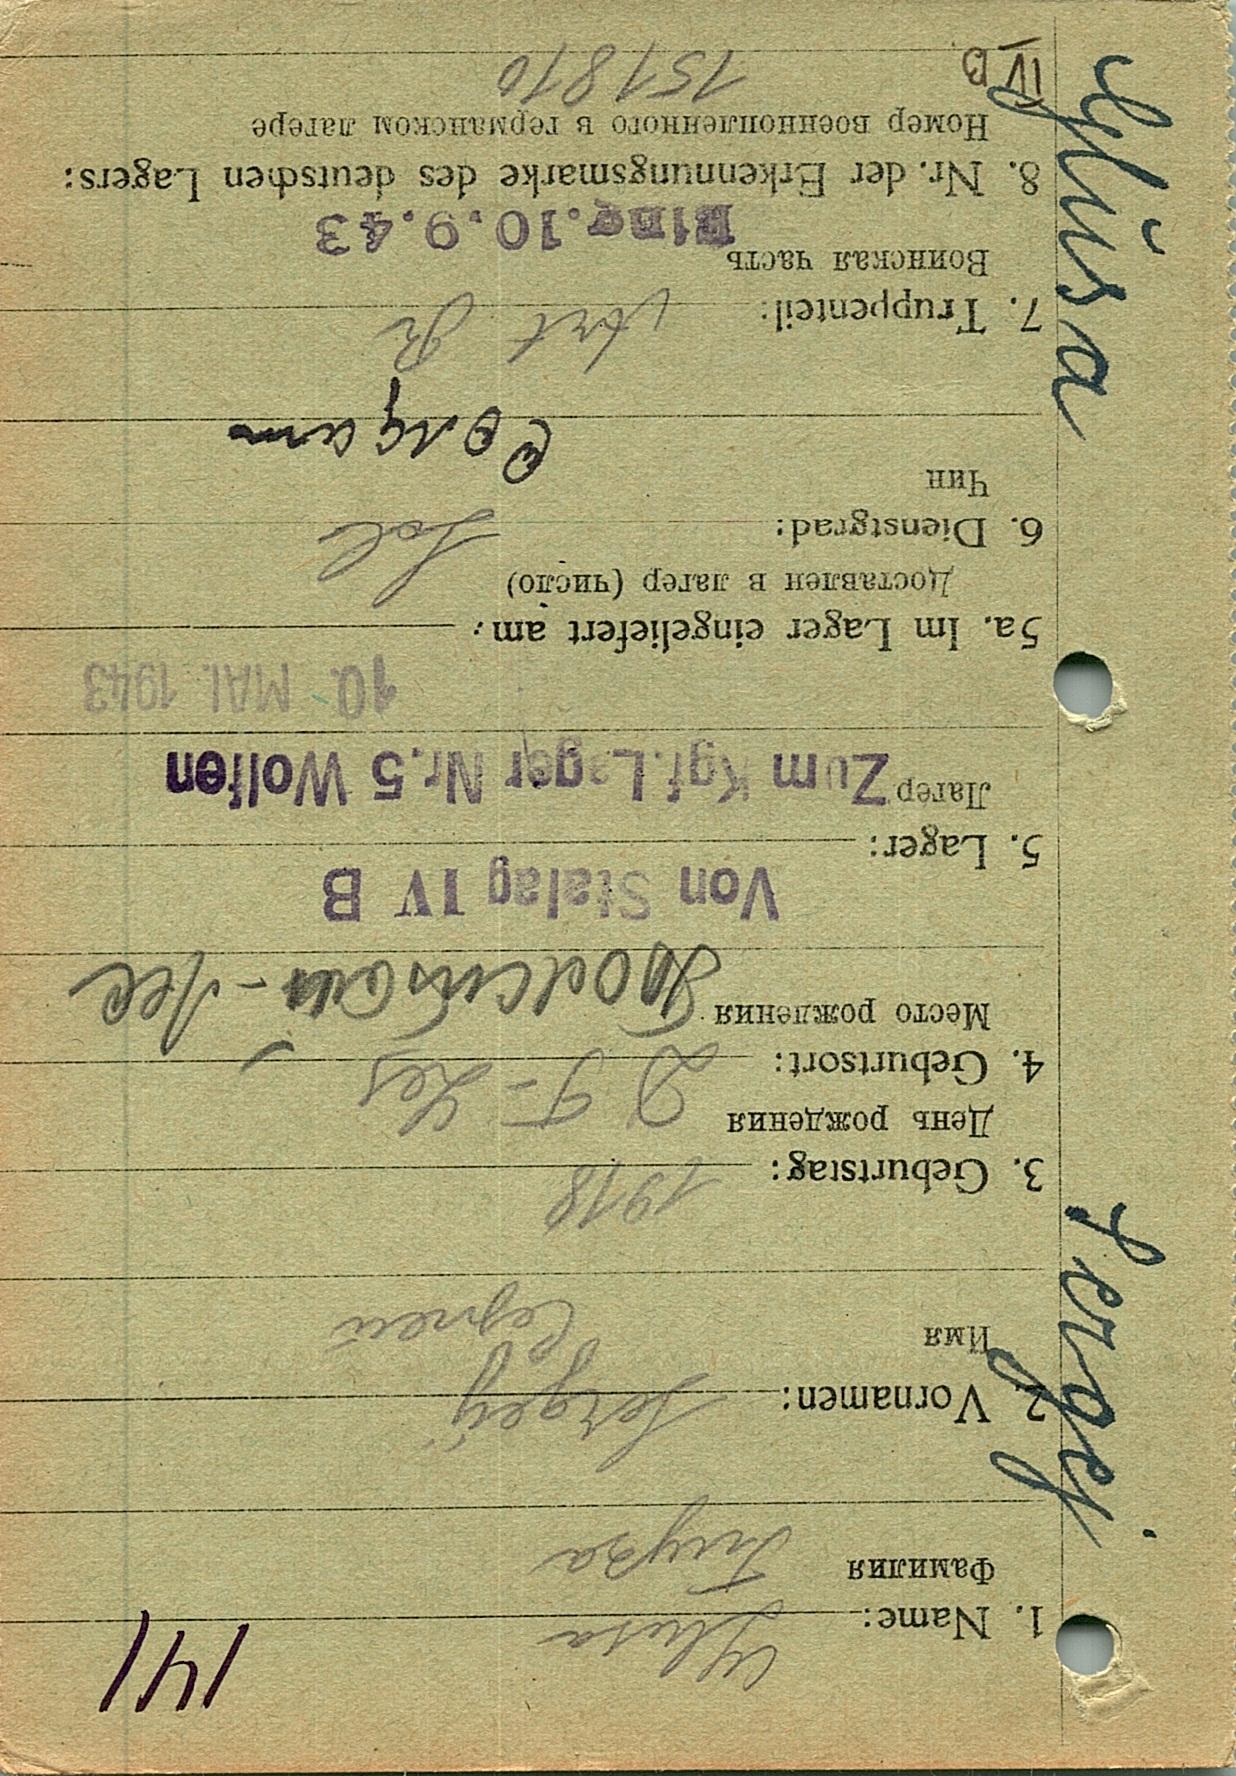 141
1. Name: Glusa
Фамилия Глуза
2. Vornamen: Sergej
Имя Сергей
3. Geburtstag: 1918
День рождения
4. Geburtsort:
Место рождения
Von Stalag IV B
5. Lager:
Лагер Zum Kgf. Lager Nr. 5 Wolfen
10. MAI. 1943
5a. Im Lager eingeliefert am:
Доставлен в лагер (число)
6. Dienstgrad: Sol
Чин Солдат
7. Truppenteil: Art R
Воинская часть
Eing. 10.9.43
8. Nr. der Erkennungsmarke des deutschen Lagers:
Номер военнопленного в германском лагере
151810
IV B
Sergej Glusa